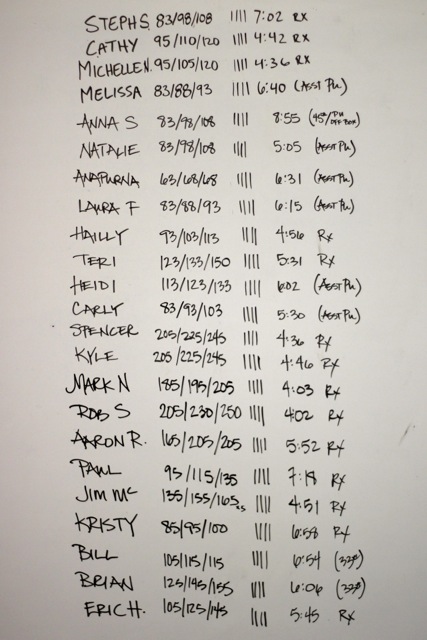 STEPH S. 83/98/108 |||| 7:02 RX
CATHY 95/110/120 |||| 4:42 RX
MICHELLE N. 95/105/120 |||| 4:36 RX
MELISSA 83/88/93 |||| 6:40 (ASST PU)
ANNA S 83/98/108 |||| 8:55 (45#/PU OFF BOX)
NATALIE 83/98/108 |||| 5:05 (ASST PU)
ANAPURNA 63/68/68 |||| 6:31 (ASST PU)
LAURA F 83/88/93 |||| 6:15 (ASST PU)
HAILLY 93/103/113 |||| 4:56 RX
TERI 123/133/150 |||| 5:31 RX
HEIDI 113/123/133 |||| 6:02 (ASST PU)
CARLY 83/93/103 |||| 5:30 (ASST PU)
SPENCER 205/225/245 |||| 4:36 RX
KYLE 205/225/245 |||| 4:46 RX
MARK N 185/195/205 |||| 4:03 RX
ROB S 205/230/250 |||| 4:02 RX
AARON R. 165/205/205 |||| 5:52 RX
PAUL 95/115/135 |||| 7:18 RX
JIM MC 135/155/165 |||| 4:51 RX
KRISTY 85/95/100 |||| 6:58 RX
BILL 105/115/115 |||| 6:54 (33#)
BRIAN 125/145/155 |||| 6:06 (33#)
ERIC H. 105/125/145 |||| 5:45 RX